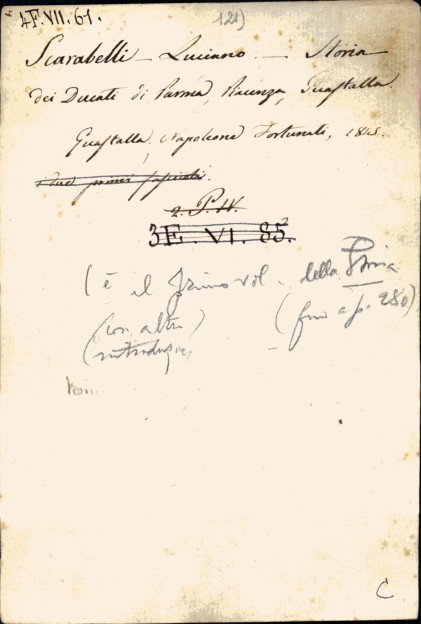 4F.VII.61.
121)
Scarabelli – Luciano. – Storia
dei Ducati di Parma, Piacenza, Guastalla.
Guastalla, Napoleone Fortunati, 1845.
I due primi fascicoli.
2. P. IV.
3E. VI. 85².
(è il primo vol. della Storia
(con altra) (fino a p. 280)
(introduzion
C